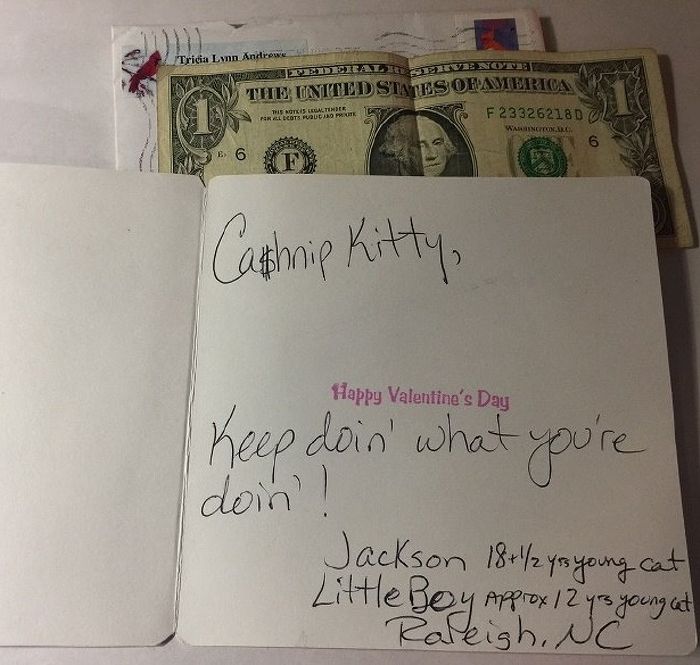 Tricia Lynn Andrews
FEDERAL RESERVE NOTE
THE UNITED STATES OF AMERICA
THIS NOTE IS LEGAL TENDER
FOR ALL DEBTS PUBLIC AND PRIVATE
F 23326218 D
WASHINGTON, D.C.
1
1
6
F
6
Ca$hnip Kitty,
Happy Valentine's Day
Keep doin' what you're
doin'!
Jackson 18+1/2 yrs young cat
Little Boy Approx 12 yrs young cat
Raleigh, NC